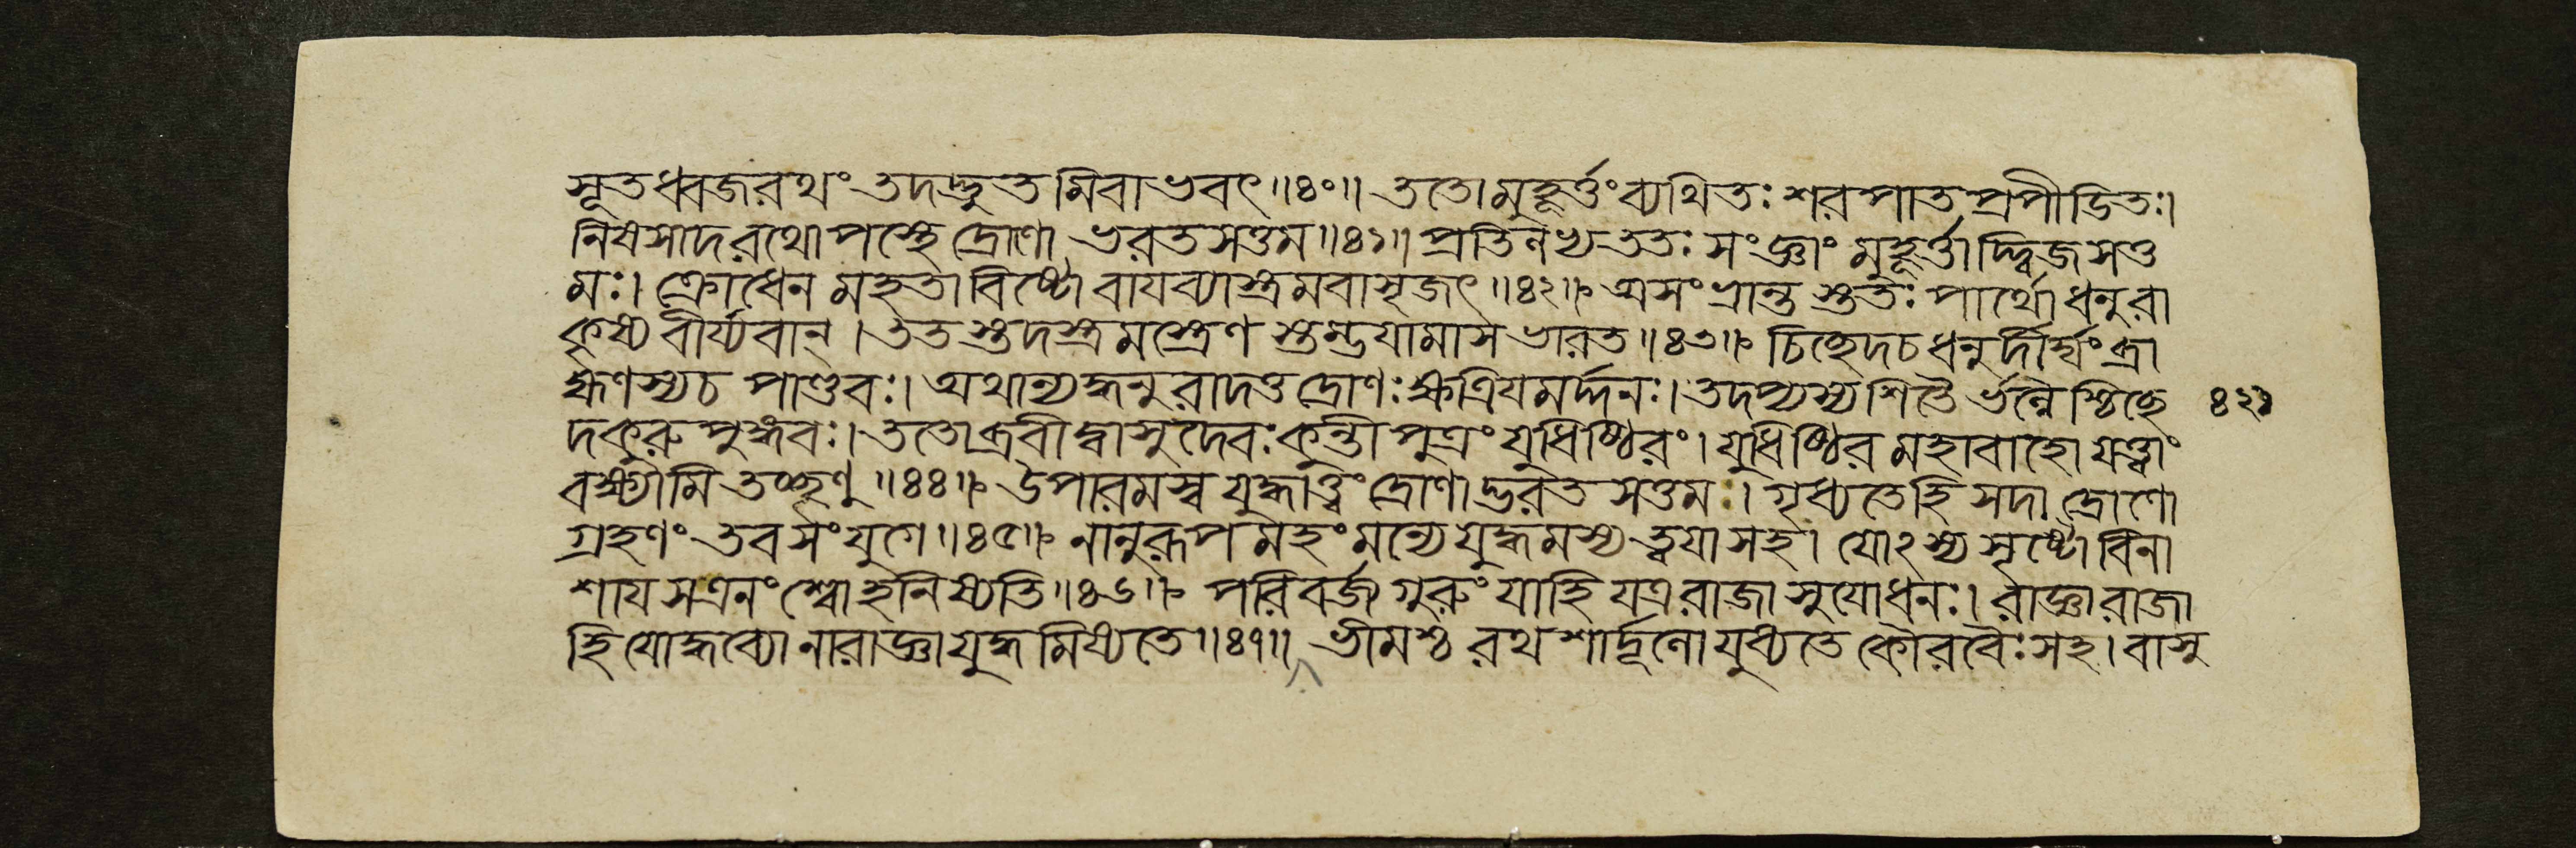 সূতধ্বজরথং তদদ্ভুতমিবাভবৎ॥৪০॥ ততোমুহূর্ত্তংব্যথিতঃ শরপাতপ্রপীডিতঃ।
নিষসাদরথোপস্থে দ্রোণো ভরতসত্তম॥৪১॥ প্রতিলভ্যততঃ সংজ্ঞাং মুহূর্ত্তাদ্দ্বিজসত্ত
মঃ। ক্রোধেন মহতাবিষ্টো বাযব্যাস্ত্রমবাসৃজৎ॥৪২॥ অসংভ্রান্তস্ততঃ পার্থোধনুরা
কৃষ্য বীর্য্যবান্। ততস্তদস্ত্রমস্ত্রেণ স্তম্ভযামাস ভারত॥৪৩॥ চিচ্ছেদচধনুর্দীর্ঘংব্রা
হ্মণস্যচ পাণ্ডবঃ। অথান্যদ্ধনুরাদত্ত দ্রোণঃ ক্ষত্রিযমর্দ্দনঃ। তদপ্যস্যশিতৈর্ভল্লৈশ্চিচ্ছে
৪২১
দকুরুপুঙ্গবঃ। ততোব্রবীদ্বাসুদেবঃ কুন্তীপুত্রং যুধিষ্ঠিরং। যুধিষ্ঠির মহাবাহো যত্ত্বাং
বক্ষ্যামি তচ্ছৃণু॥৪৪॥ উপারমস্ব যুদ্ধাত্ত্বং দ্রোণাদ্ভরতসত্তমঃ। গৃধ্যতেহি সদা দ্রোণো
গ্রহণং তব সংযুগে॥৪৫॥ নানুরূপমহংমন্যে যুদ্ধমস্য ত্বযাসহ। যোঽস্য সৃষ্টো বিনা
শায সএনংশ্বোহনিষ্যতি॥৪৬॥ পরিবর্জ্য গুরুং যাহি যত্ররাজা সুযোধনঃ। রাজ্ঞারাজা
হি যোদ্ধব্যো নারাজ্ঞাযুদ্ধমিষ্যতে॥৪৭॥ ভীমশ্চ রথশার্দূলো যুধ্যতে কৌরবৈঃসহ। বাসু